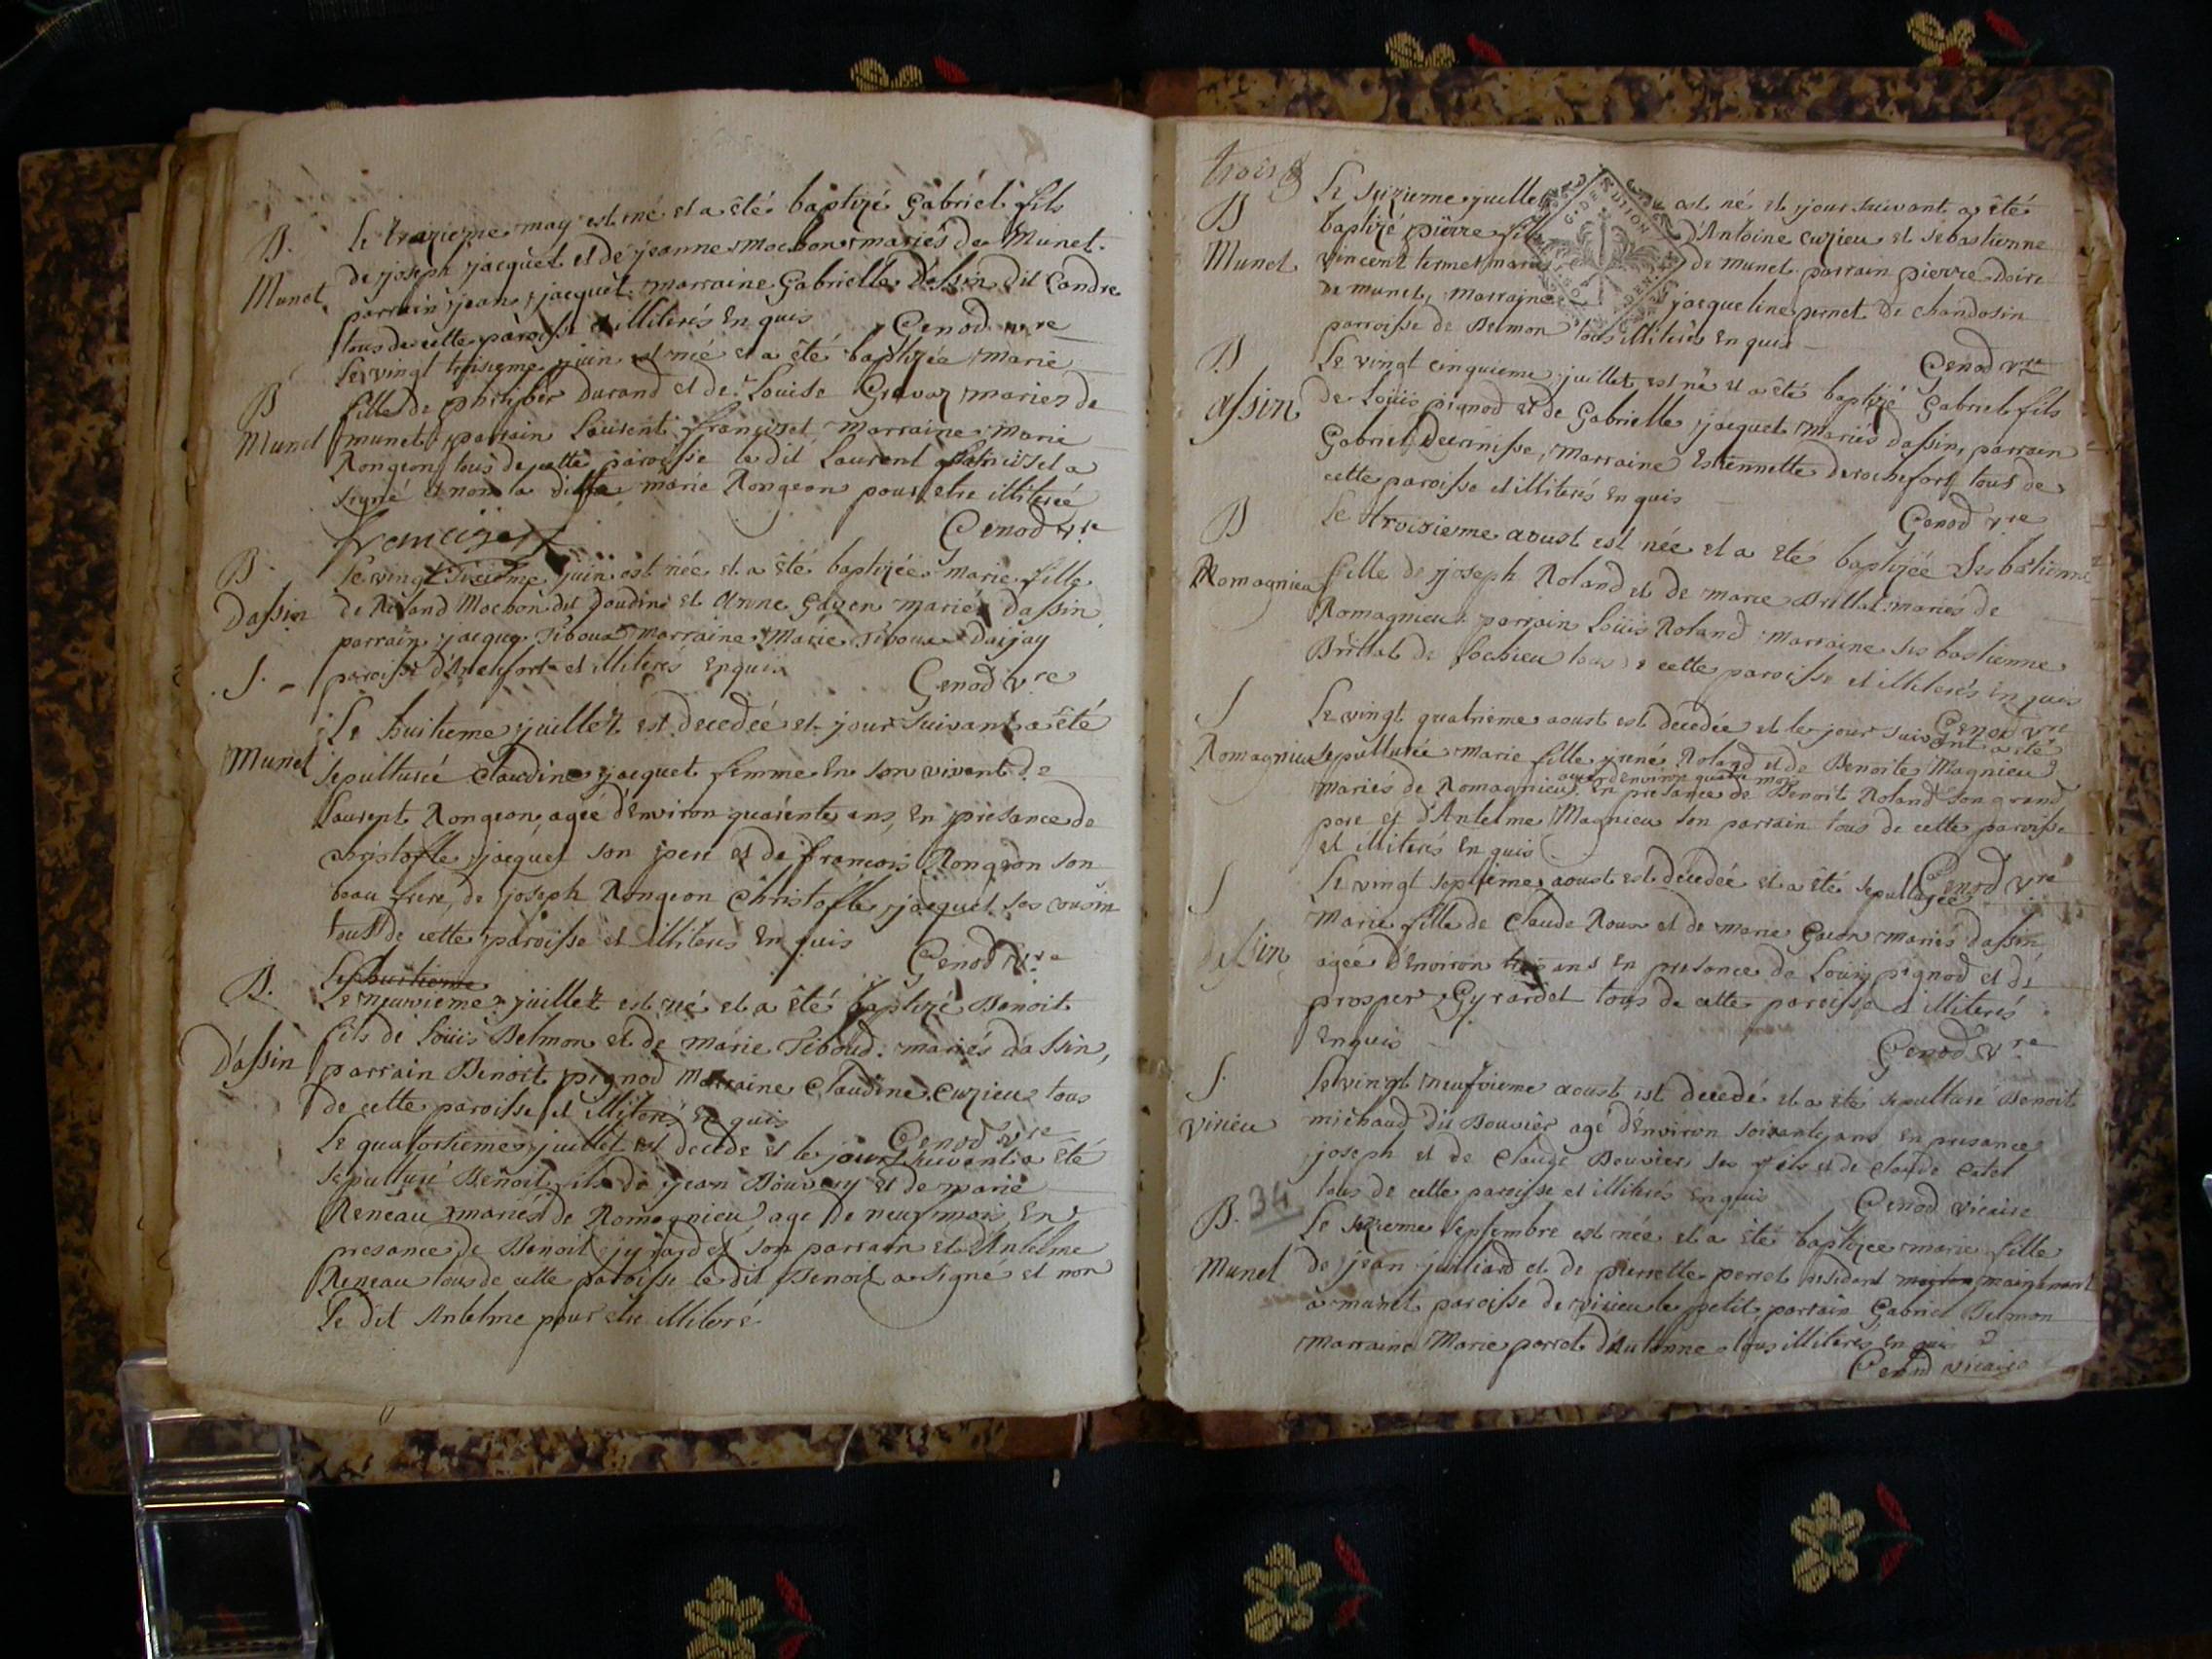 B.
Munet
Le trezieme may est né et a été baptizé Gabriel fils
de joseph jacquet et de jeanne Mochon mariés de Munet
parrain jean jacquet marraine Gabrielle Dassin dit Condre
tous de cette paroisse et illiterés Enquis Genod vre
B
Munet
Le vingt troisieme juin est née et a été baptizée Marie
fille de philiber Durand et de Louise Gravaz mariés de
munet parrain Laurent françiset Marraine Marie
Rongeon tous de cette paroisse le dit Laurent françiset a
signé et non la ditte marie Rongeon pour etre illiterée
françiset Genod vre
B.
Dassin
Le vingt juin est née et a été baptizée marie fille
de Roland Mochon dit Doudin et Anne Gayen mariés dassin
parrain jacque Tiboud marraine Marie Tiboud
paroisse et illiterés Enquis Genod vre
S.
Munet
Le huitieme juillet est decedée et jour suivant a été
sepulturée Claudine jacquet femme En son vivant de
Laurent Rongeon agée d'Environ quarente ans, En présance de
christofle jacquet son pere et de françois Rongeon son
beau frere, de joseph Rongeon Christofle jacquet ses cousin
tous de cette paroisse et illiterés Enquis Genod vre
B.
D'assin
Le huitieme
Le neuvieme juillet est né et a été baptizé Benoit
fils de Loüis Belmon et de marie Tiboud mariés d'assin,
parrain Benoit pignod Marraine Claudine Cuzieu tous
de cette paroisse et illiterés Enquis Genod vre
Le quatortieme juillet est decede et le jour suivant a été
sepulturé Benoit fils de jean Bouvery et de marie
Reneau mariés de Romagnieu age de neuf mois En
presance de Benoit jyrardet son parrain et d'Antelme
Reneau tous de cette paroisse le dit Benoit a signé et non
le dit Antelme pour etre illiteré
trois
B
Munet
Le sezieme juillet est né et jour suivant a été
baptizé pierre fils d'Antoine Cuzieu et sebastienne
vincent termet mariés de munet parrain pierre Doire
de munet, Marraine jacqueline pernet de chandosin
parroisse de Belmon tous illiterés Enquis Genod vre
G. DE DIJON
DEN
B
assin
Le vingt cinquieme juillet est né et a été baptizé Gabriel fils
de Loüis pignod et de Gabrielle jacquet Mariés dassin, parrain
Gabriel Decrinisse, Marraine Estiennette derochefort tous de
cette paroisse et illiterés Enquis Genod vre
B
Romagnieu
Le troisieme aoust est née et a été baptizée Sebastienne
fille de joseph Roland et de marie Brillat mariés de
Romagnieu parrain Loüis Roland marraine sebastienne
Brillat de Lochieu tous de cette paroisse et illiterés Enquis
Genod vre
S
Romagnieu
Le vingt quatrieme aoust est decedée et le jour suivant a été
sepulturée marie fille jrené Roland et de Benoite Magnieu
mariés de Romagnieu agée d'Environ quatre mois En presance de Benoit Roland son grand
pere et d'Antelme Magnieu son parrain tous de cette paroisse
et illiterés Enquis Genod vre
S
dassin
Le vingt septieme aoust est decedée et a été sepulturée
Marie fille de Claude Roux et de marie Gacon mariés dassin
agée d'Environ trois ans en presance de Loüis pignod et de
prosper Gyrardet tous de cette paroisse et illiterés
Enquis Genod vre
S.
virieu
Le vingt neufvieme aoust est decedé et a été sepulturé Benoit
michaud dit Bouvier agé d'Environ soixante ans En presance
joseph et de Claude Bouvier, ses fils et de Claude Catel
tous de cette paroisse et illiterés Enquis Genod vicaire
B. 34
Munet
Le sezieme Septembre est née et a été baptizee marie fille
de jean juilliard et de pierrette perret residant maintenant
a munet paroisse de virieu le petit, parrain Gabriel Belmon
Marraine Marie perret d'Autonne tous illiterés Enquis
Genod vicaire